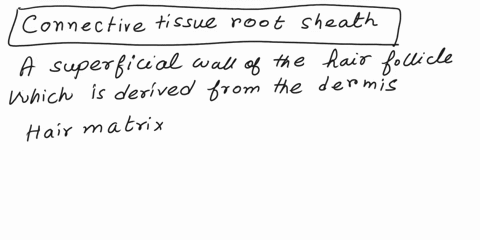 Connective tissue root sheath
A superficial wall of the hair follicle
Which is derived from the dermis
Hair matrix